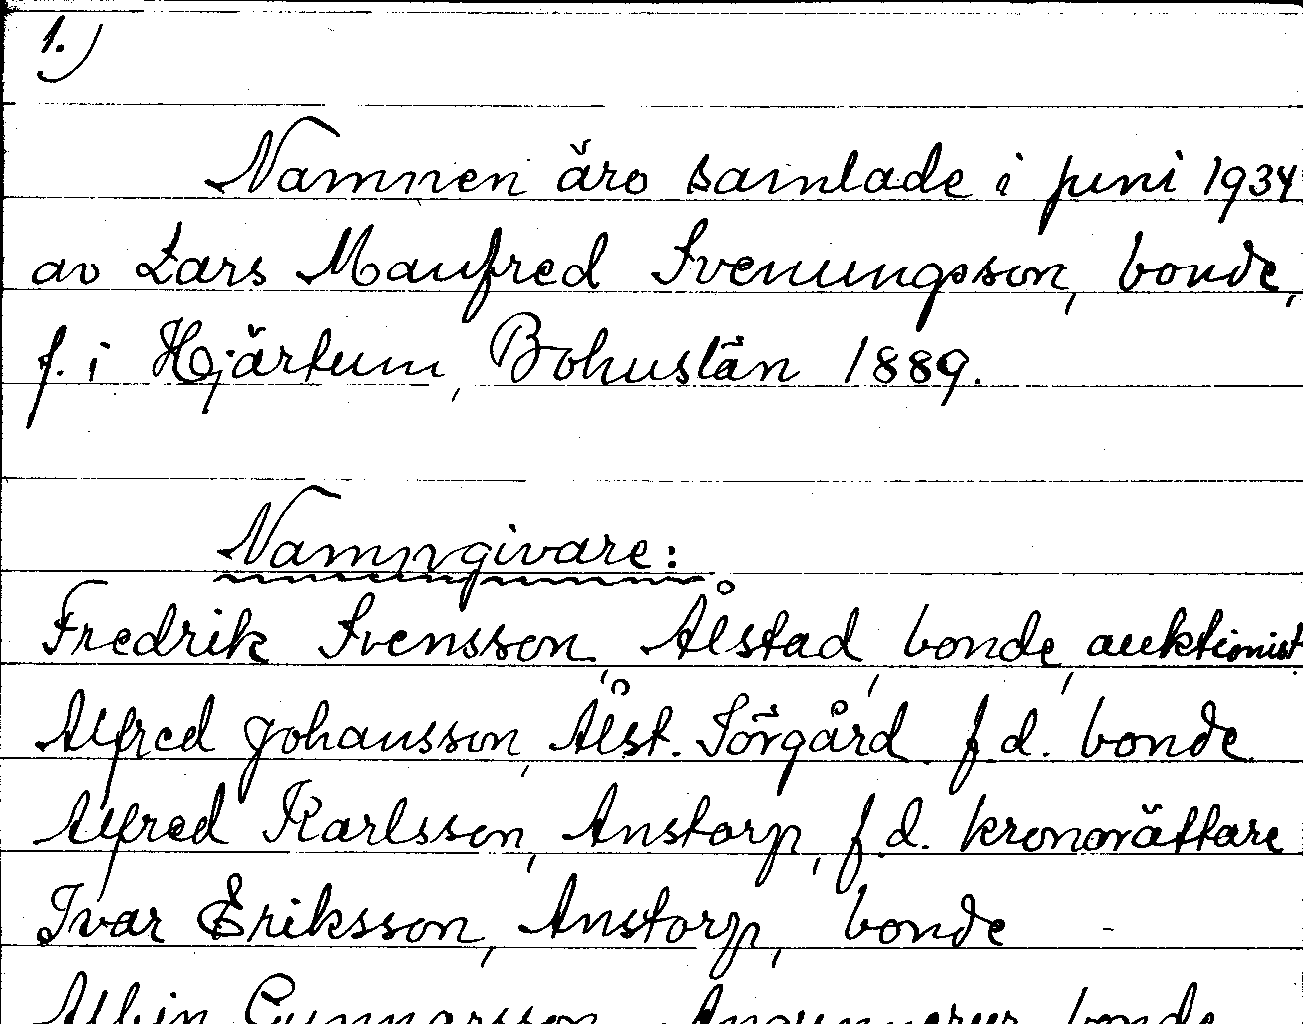 1.)
Namnen äro samlade i juni 1934
av Lars Manfred Svenungsson, bonde,
f. i Hjärtum, Bohuslän 1889.
Namngivare:
Fredrik Svensson, Ålstad, bonde, auktionist.
Alfred Johansson, Ålst. Sörgård f.d. bonde
Alfred Karlsson, Anstorp, f.d. kronorättare
Ivar Eriksson, Anstorp, bonde
Albin Gunnarsson bonde